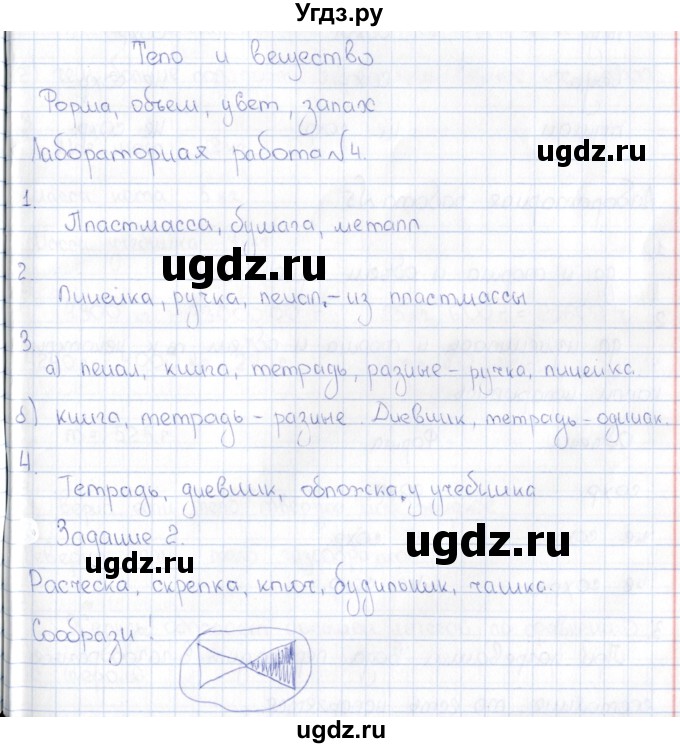 Угдз.ру
Тело и вещество
Форма, объем, цвет, запах
Лабораторная работа №4.
ugdz.ru
1.
Пластмасса, бумага, металл
ugdz.ru
2.
Линейка, ручка, пенал, - из пластмассы
3.
а) пенал, книга, тетрадь, разные - ручка, линейка.
б) книга, тетрадь - разные. Дневник, тетрадь - одинак.
4.
Тетрадь, дневник, обложка у учебника
Задание 2.
ugdz.ru
ugdz.ru
Расческа, скрепка, ключ, будильник, чашка.
Сообрази!
ugdz.ru
ugdz.ru